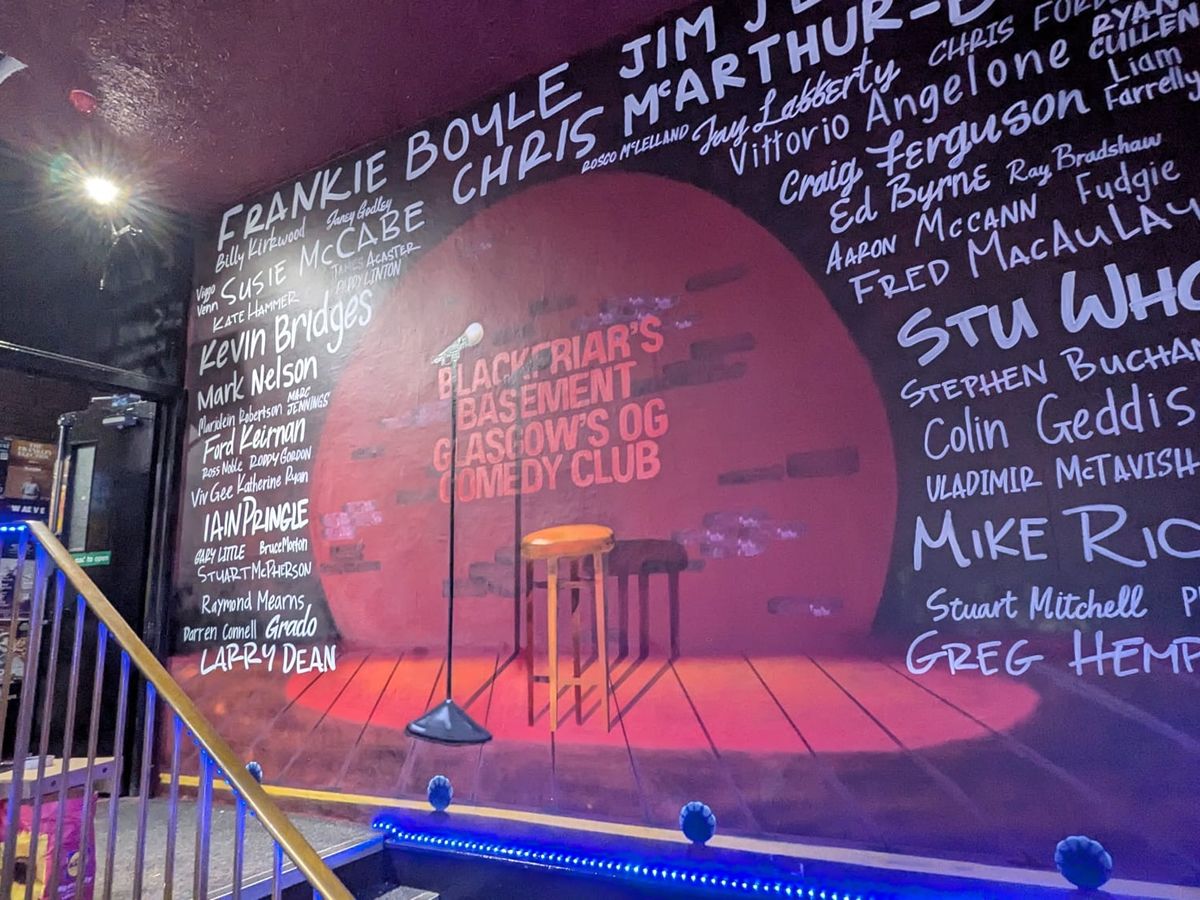 FRANKIE BOYLE
Billy Kirkwood
Janey Godley
SUSIE McCABE
Viggo
Venn
JAMES ACASTER
RUDDY LINTON
KATE HAMMER
Kevin Bridges
Mark Nelson
Marjolein Robertson
MARC
JENNINGS
Ford Keirnan
ROSS Noble
RODDY GORDON
Viv Gee
Katherine Ryan
IAIN PRINGLE
GARY LITTLE
Bruce Morton
STUART McPHERSON
Raymond Mearns
Darren Connell
Grado
LARRY DEAN
BLACKFRIAR'S
BASEMENT
GLASGOW'S OG
COMEDY CLUB
JIM
CHRIS McARTHUR-
ROSCO McLELLAND
Jay Lafferty
CHRIS
Vittorio Angelone
RYAN
CULLEN
Liam
Farrelly
Craig Ferguson
Ed Byrne
Ray Bradshaw
AARON McCANN
Fudgie
FRED MACAULAY
STU WHO
STEPHEN BUCHAN
Colin Geddis
VLADIMIR McTAVISH
MIKE RIC
Stuart Mitchell
P
GREG HEMP